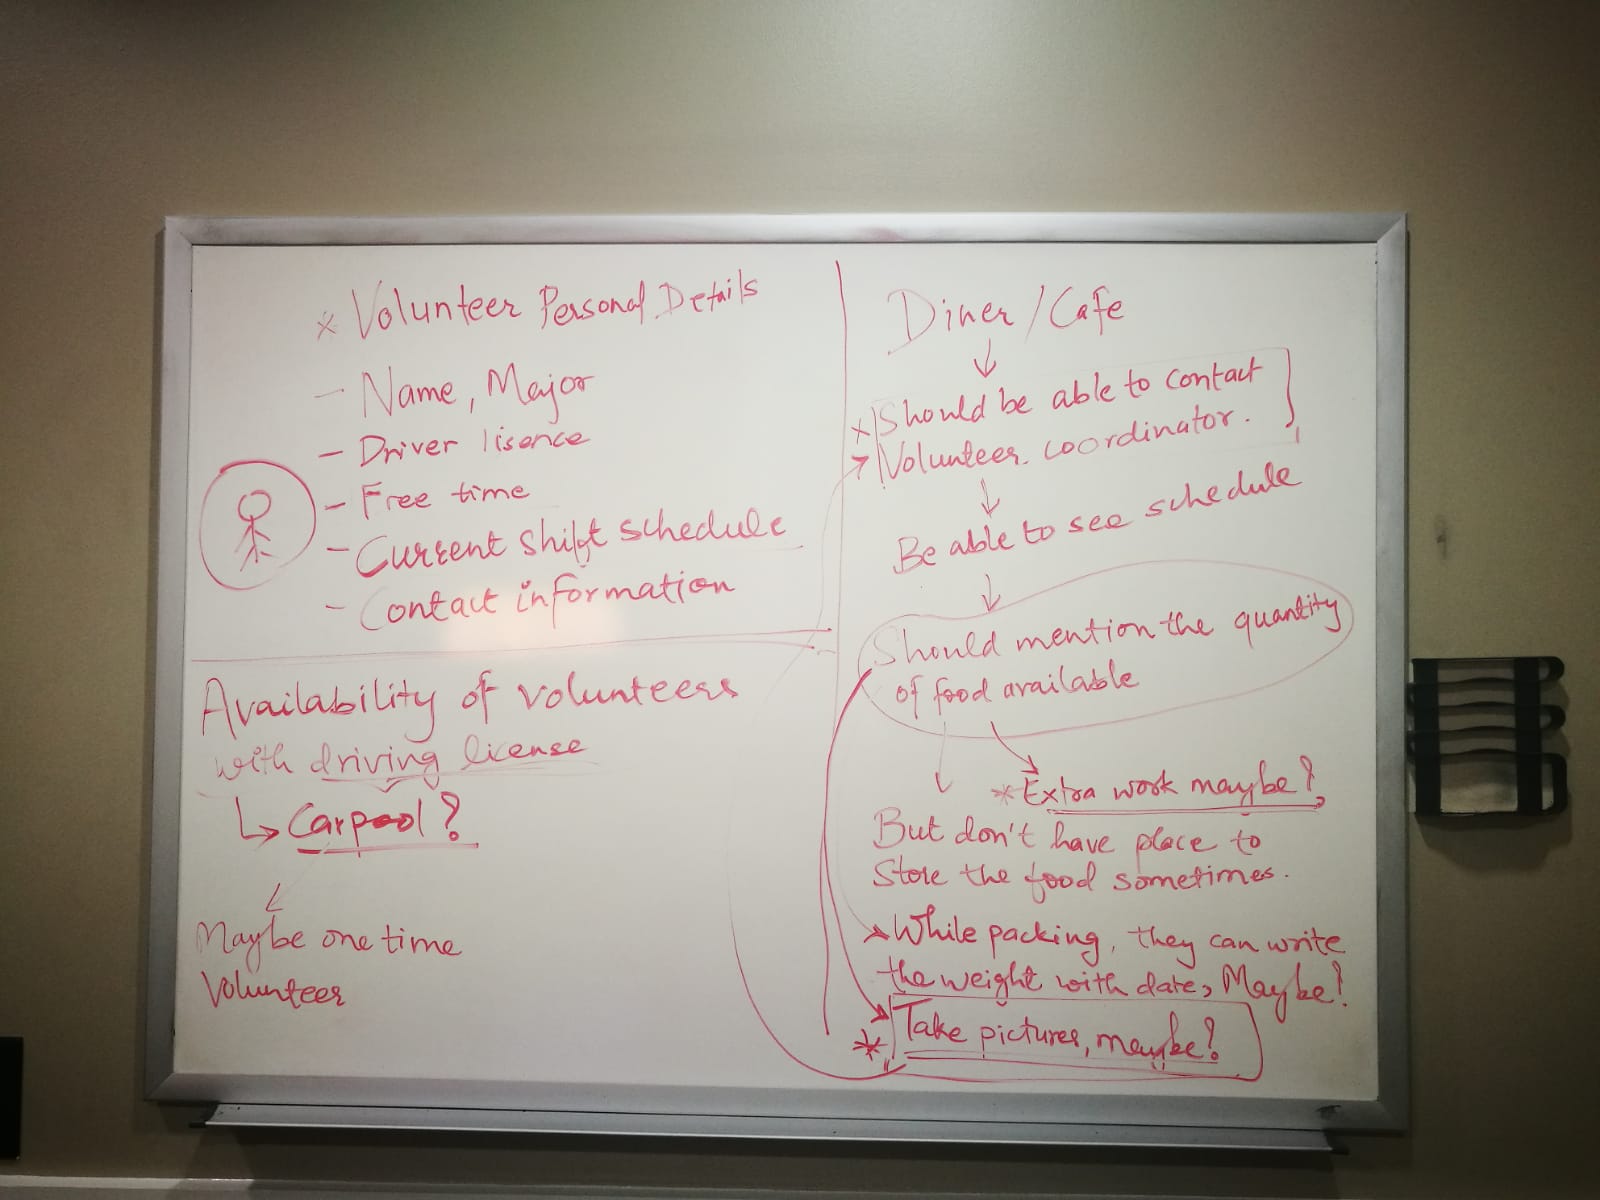 * Volunteer Personal Details
- Name, Major
- Driver lisence
- Free time
- Current shift schedule
- Contact information
Availability of volunteers
with driving license
↳ Carpool?
Maybe one time
Volunteer
Diner/Cafe
* Should be able to contact
Volunteer coordinator.
Be able to see schedule
Should mention the quantity
of food available
* Extra work maybe?
But don't have place to
store the food sometimes.
While packing, they can write
the weight with date, Maybe?
* Take pictures, maybe?